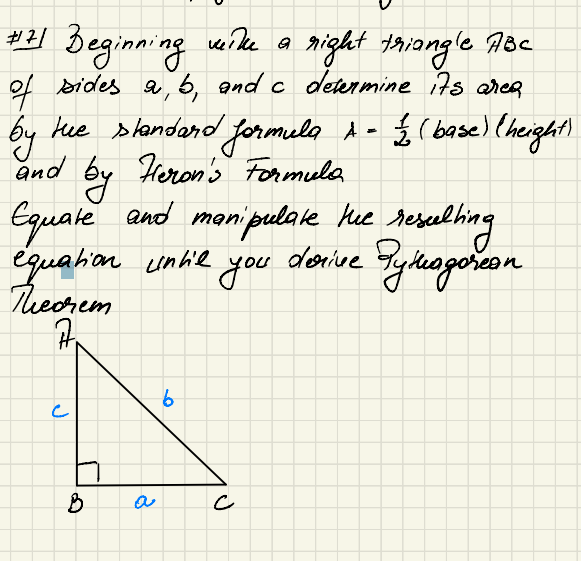 #7| Beginning with a right triangle ABC
of sides a, b, and c determine its area
by the standard formula A = 1/2 (base)(height)
and by Heron's Formula
Equate and manipulate the resulting
equation until you derive Pythagorean
Theorem
A
c b
B a C